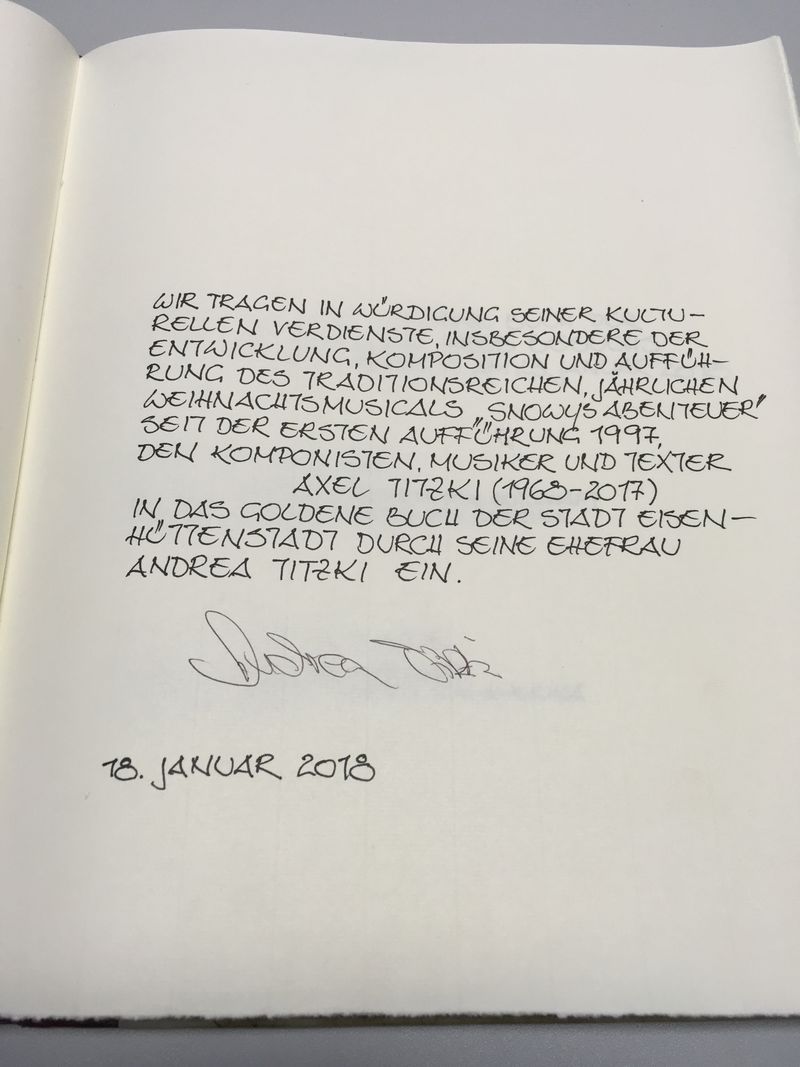 WIR TRAGEN IN WÜRDIGUNG SEINER KULTU-
RELLEN VERDIENSTE, INSBESONDERE DER
ENTWICKLUNG, KOMPOSITION UND AUFFÜH-
RUNG DES TRADITIONSREICHEN, JÄHRLICHEN
WEIHNACHTSMUSICALS „SNOWYS ABENTEUER"
SEIT DER ERSTEN AUFFÜHRUNG 1997,
DEN KOMPONISTEN, MUSIKER UND TEXTER
AXEL TITZKI (1968-2017)
IN DAS GOLDENE BUCH DER STADT EISEN-
HÜTTENSTADT DURCH SEINE EHEFRAU
ANDREA TITZKI EIN.
Andrea Titzki
18. JANUAR 2018